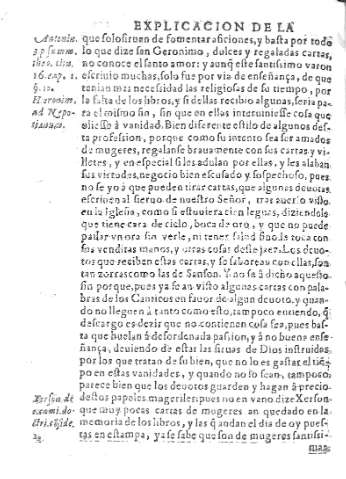 EXPLICACION DE LA
que solo siruan de fomentar aficiones, y basta por todo
lo que dize san Geronimo, dulces y regaladas cartas,
no conoce el santo amor: y aunq̃ este santisimo varon
escriuio muchas, solo fue por via de enseñança, de que
tenian mas necesidad las religiosas de su tiempo, por
la falta de los libros, y si dellas recibio algunas, seria para
el mismo fin, sin que en ellas interuiniesse cosa que
oliesse à vanidad. Bien diferente estilo de algunos des-
ta profession, porque como su intento sea ser amados
de mugeres, regalanse brauamente con sus cartas y vi-
lletes, y en especial si les adulan por ellas, y les alaban
sus virtudes, negocio bien escusado y sospechoso, pues
no se yo à que pueden tirar cartas, que algunas deuotas
escriuen al sieruo de nuestro Señor, tras auerlo visto
en la Iglesia, como si estuuiera cien leguas, diziendole
que tiene cara de cielo, boca de oro, y que no puede
passar vn ora sin verle, ni tener salud sino la toca con
sus venditas manos, y otras cosas deste jaez. Los deuo-
tos que reciben estas cartas, y se saborean con ellas, son
tan zorras como las de Sanson. Y no se à dicho aquesto
sin porque, pues ya se an visto algunas cartas con pala-
bras de los Canticos en fauor de algun deuoto, y quan-
do no lleguen à tanto como esto, tampoco entiendo, q̃
descargo es dezir que no contienen cosa fea, pues bas-
ta que huelan à desordenada passion, y à no buena ense-
ñança, deuiendo de estar las sieruas de Dios instruidas
por los que tratan de su bien, que no les gastar el tiẽ-
po en estas vanidades, y quando no lo sean, tampoco
parece bien que los deuotos guarden y hagan à precio
destos papeles mugeriles: pues no en vano dize Xerson-
que muy pocas cartas de mugeres an quedado en la
memoria de los libros, y las q̃ andan el dia de oy pues-
tas en estampa, ya se sabe que son de mugeres santisi-
mas.
Antonin.
3. p. summ.
theo. titu.
16. cap. 1.
§. 10.
Hieronim.
ad Nepo-
tianum.
Xerson. de
exami. do-
ctri. cõside.
2.